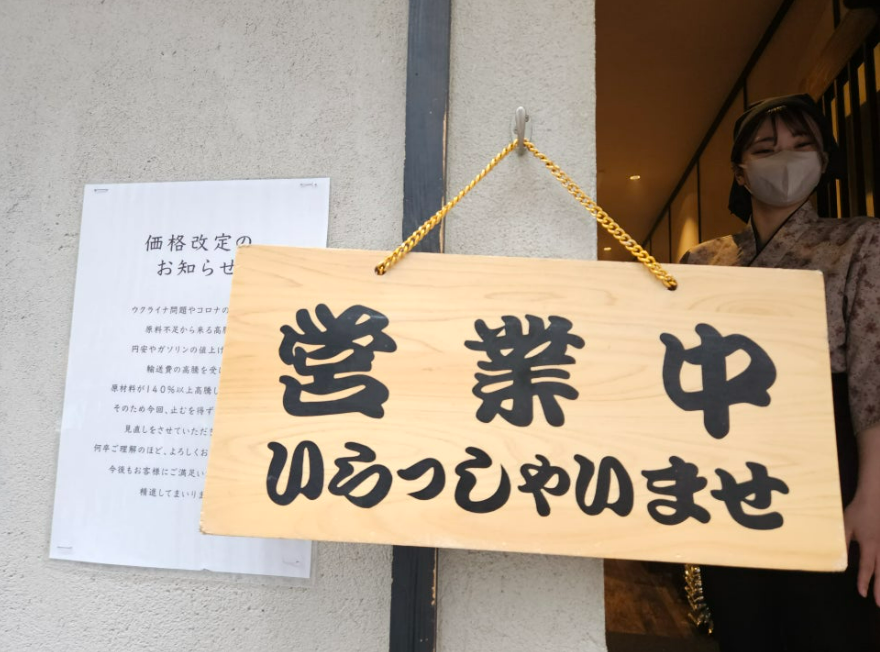 価格改定の
お知らせ
ウクライナ問題やコロナの
原料不足から来る高
円安やガソリンの値上
輸送費の高騰を受
原材料が140%以上高騰し
そのため今回、止むを得ず
見直しをさせていただ
何卒ご理解のほど、よろしくお
今後もお客様にご満足い
精進してまいりま
営業中
いらっしゃいませ